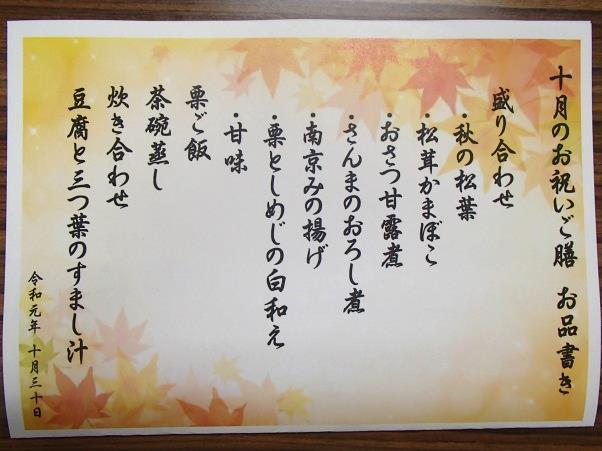 十月のお祝いご膳 お品書き
盛り合わせ
・秋の松葉
・松茸かまぼこ
・おさつ甘露煮
・さんまのおろし煮
・南京みの揚げ
・栗としめじの白和え
・甘味
栗ご飯
茶碗蒸し
炊き合わせ
豆腐と三つ葉のすまし汁
令和元年 十月三十日